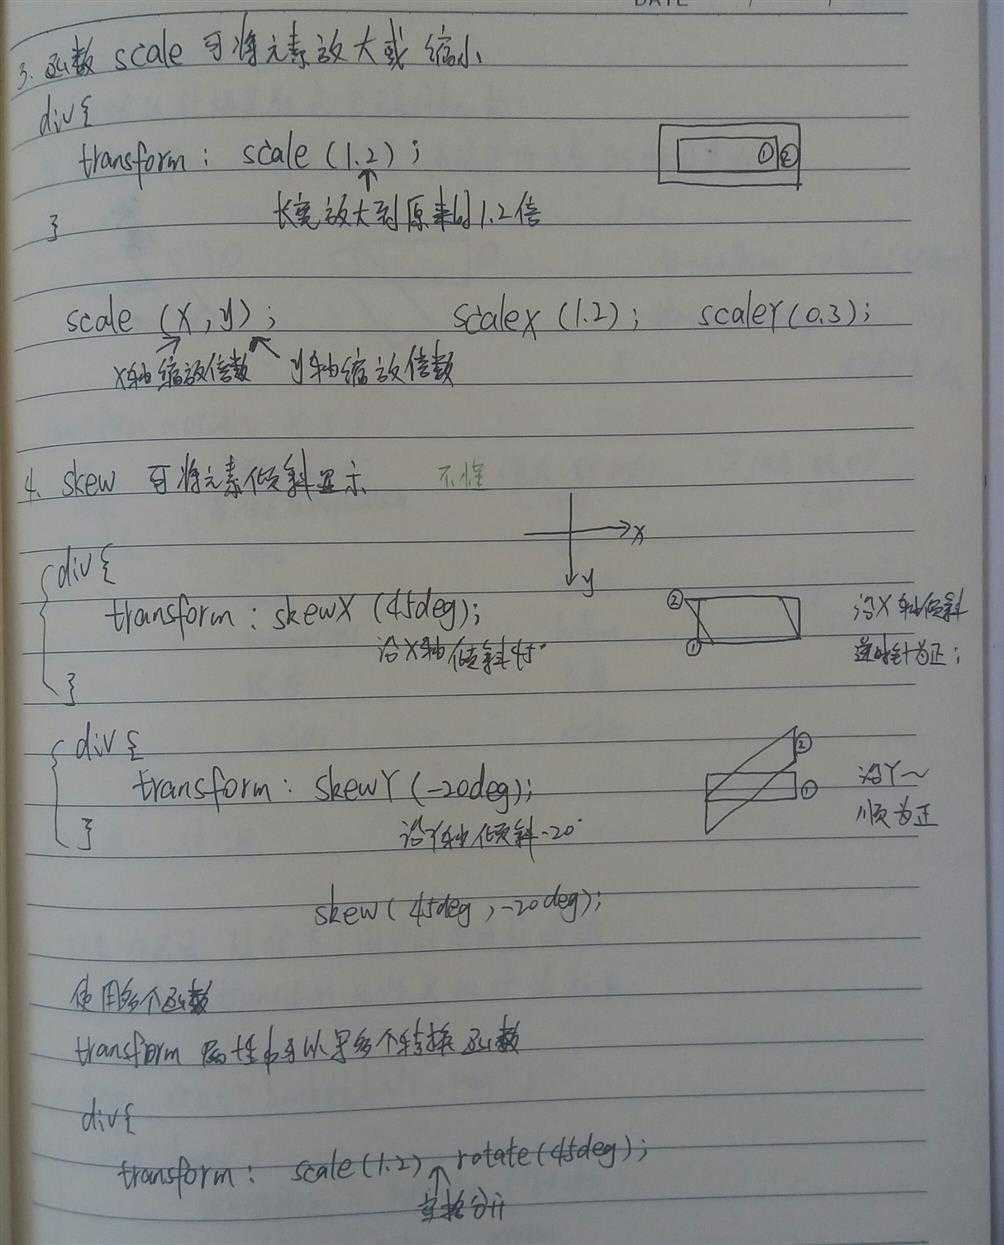 DATE
3. 函数 scale 可将元素放大或缩小
div{
transform: scale (1.2);
① ②
长宽放大到原来的1.2倍
}
scale (X, y); scaleX (1.2); scaleY (0.3);
X轴缩放倍数 y轴缩放倍数
4. skew 可将元素倾斜显示 不懂
x
y
div{
transform: skewX (45deg);
沿X轴倾斜45°
② ①
沿X轴倾斜
逆时针为正;
}
div{
transform: skewY (-20deg);
沿Y轴倾斜-20°
② ①
沿Y~
顺为正
}
skew (45deg, -20deg);
使用多个函数
transform 属性中可以写多个转换函数
div{
transform: scale (1.2) rotate (45deg);
空格分开